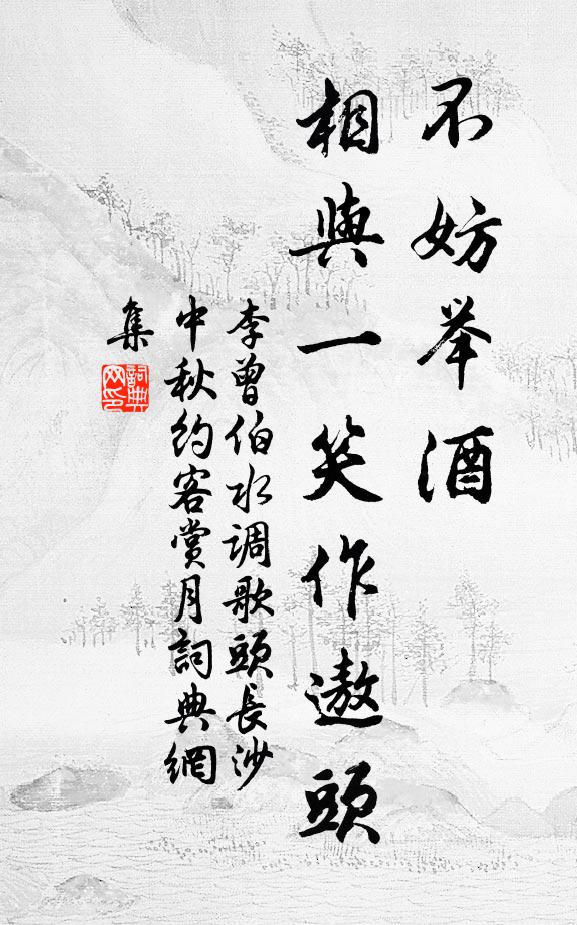 不妨举酒
相與一笑作遨頭
李曾伯水调歌頭長沙
中秋约客赏月詞典網
集
詞典
网印